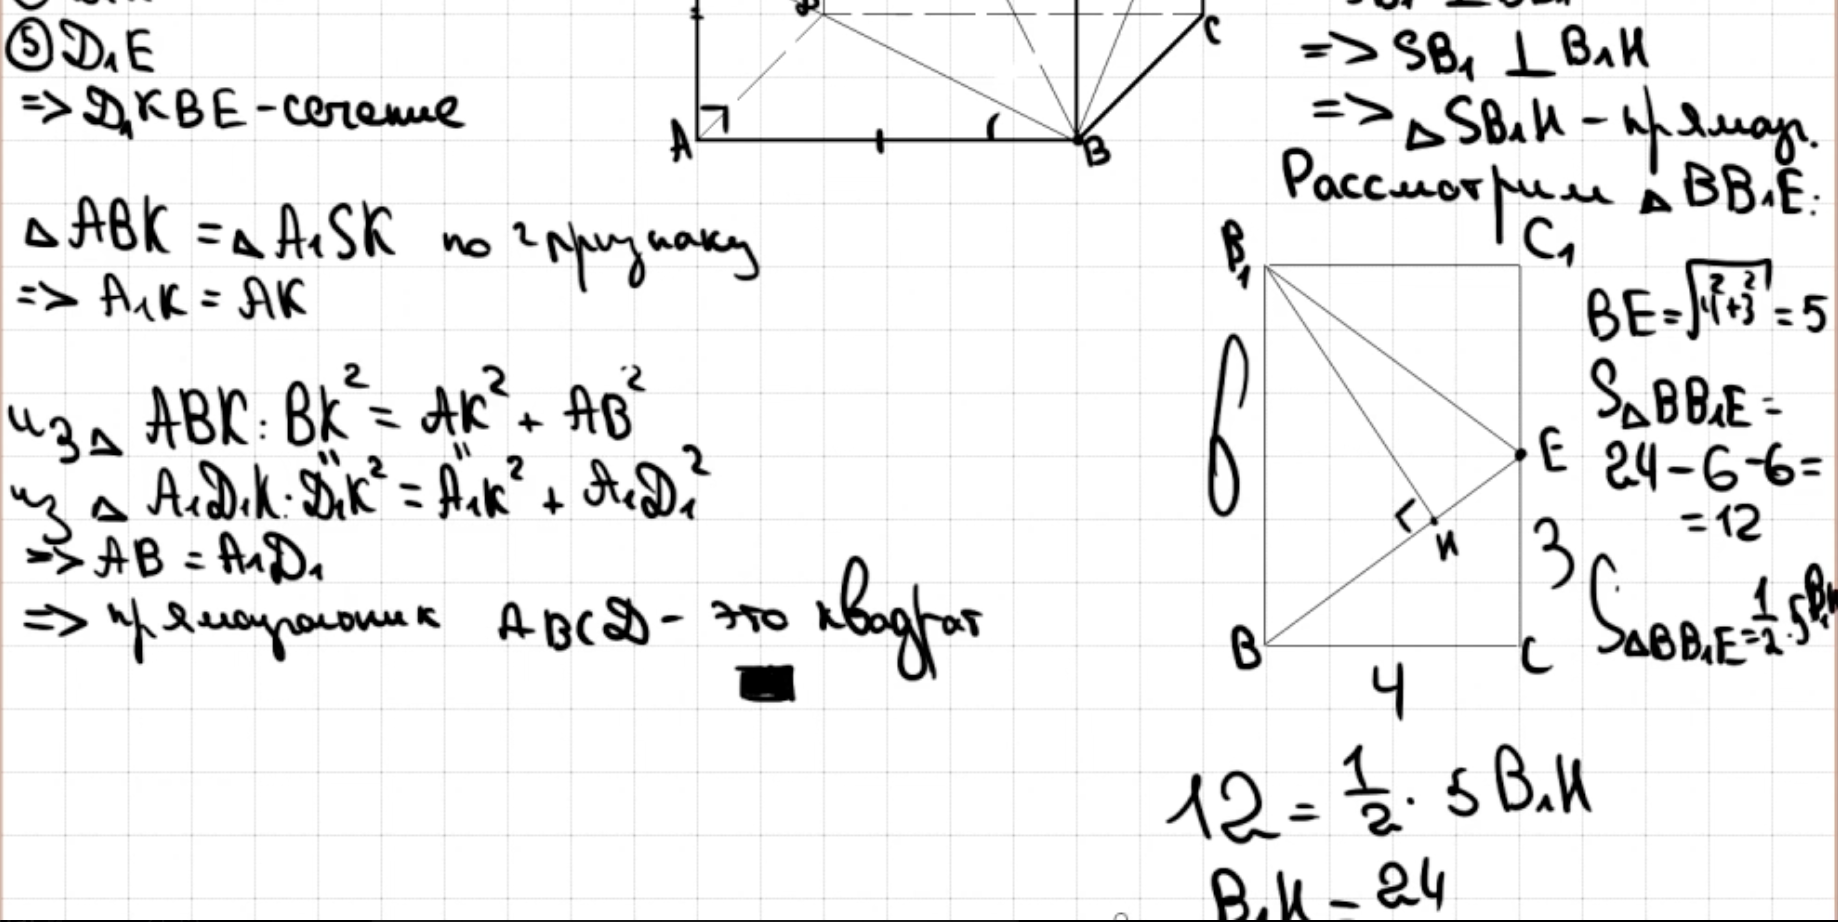 ⑤ D₁E
=> D₁KBE - сечение
△ ABK = △ A₁SK по 2 признаку
=> A₁K = AK
из △ ABK: BK² = AK² + AB²
" "
из △ A₁D₁K: D₁K² = A₁K² + A₁D₁²
=> AB = A₁D₁
=> прямоугольник ABCD - это квадрат
A
B
C
=> SB₁ ⊥ B₁H
=> △ SB₁H - прямоуг.
Рассмотрим △ BB₁E:
B₁
C₁
6
E
H
3
B
C
4
BE = √4²+3² = 5
S△BB₁E =
24 - 6 - 6 =
= 12
S△BB₁E = 1/2 · 5
12 = 1/2 · 5 B₁H
B₁H = 24